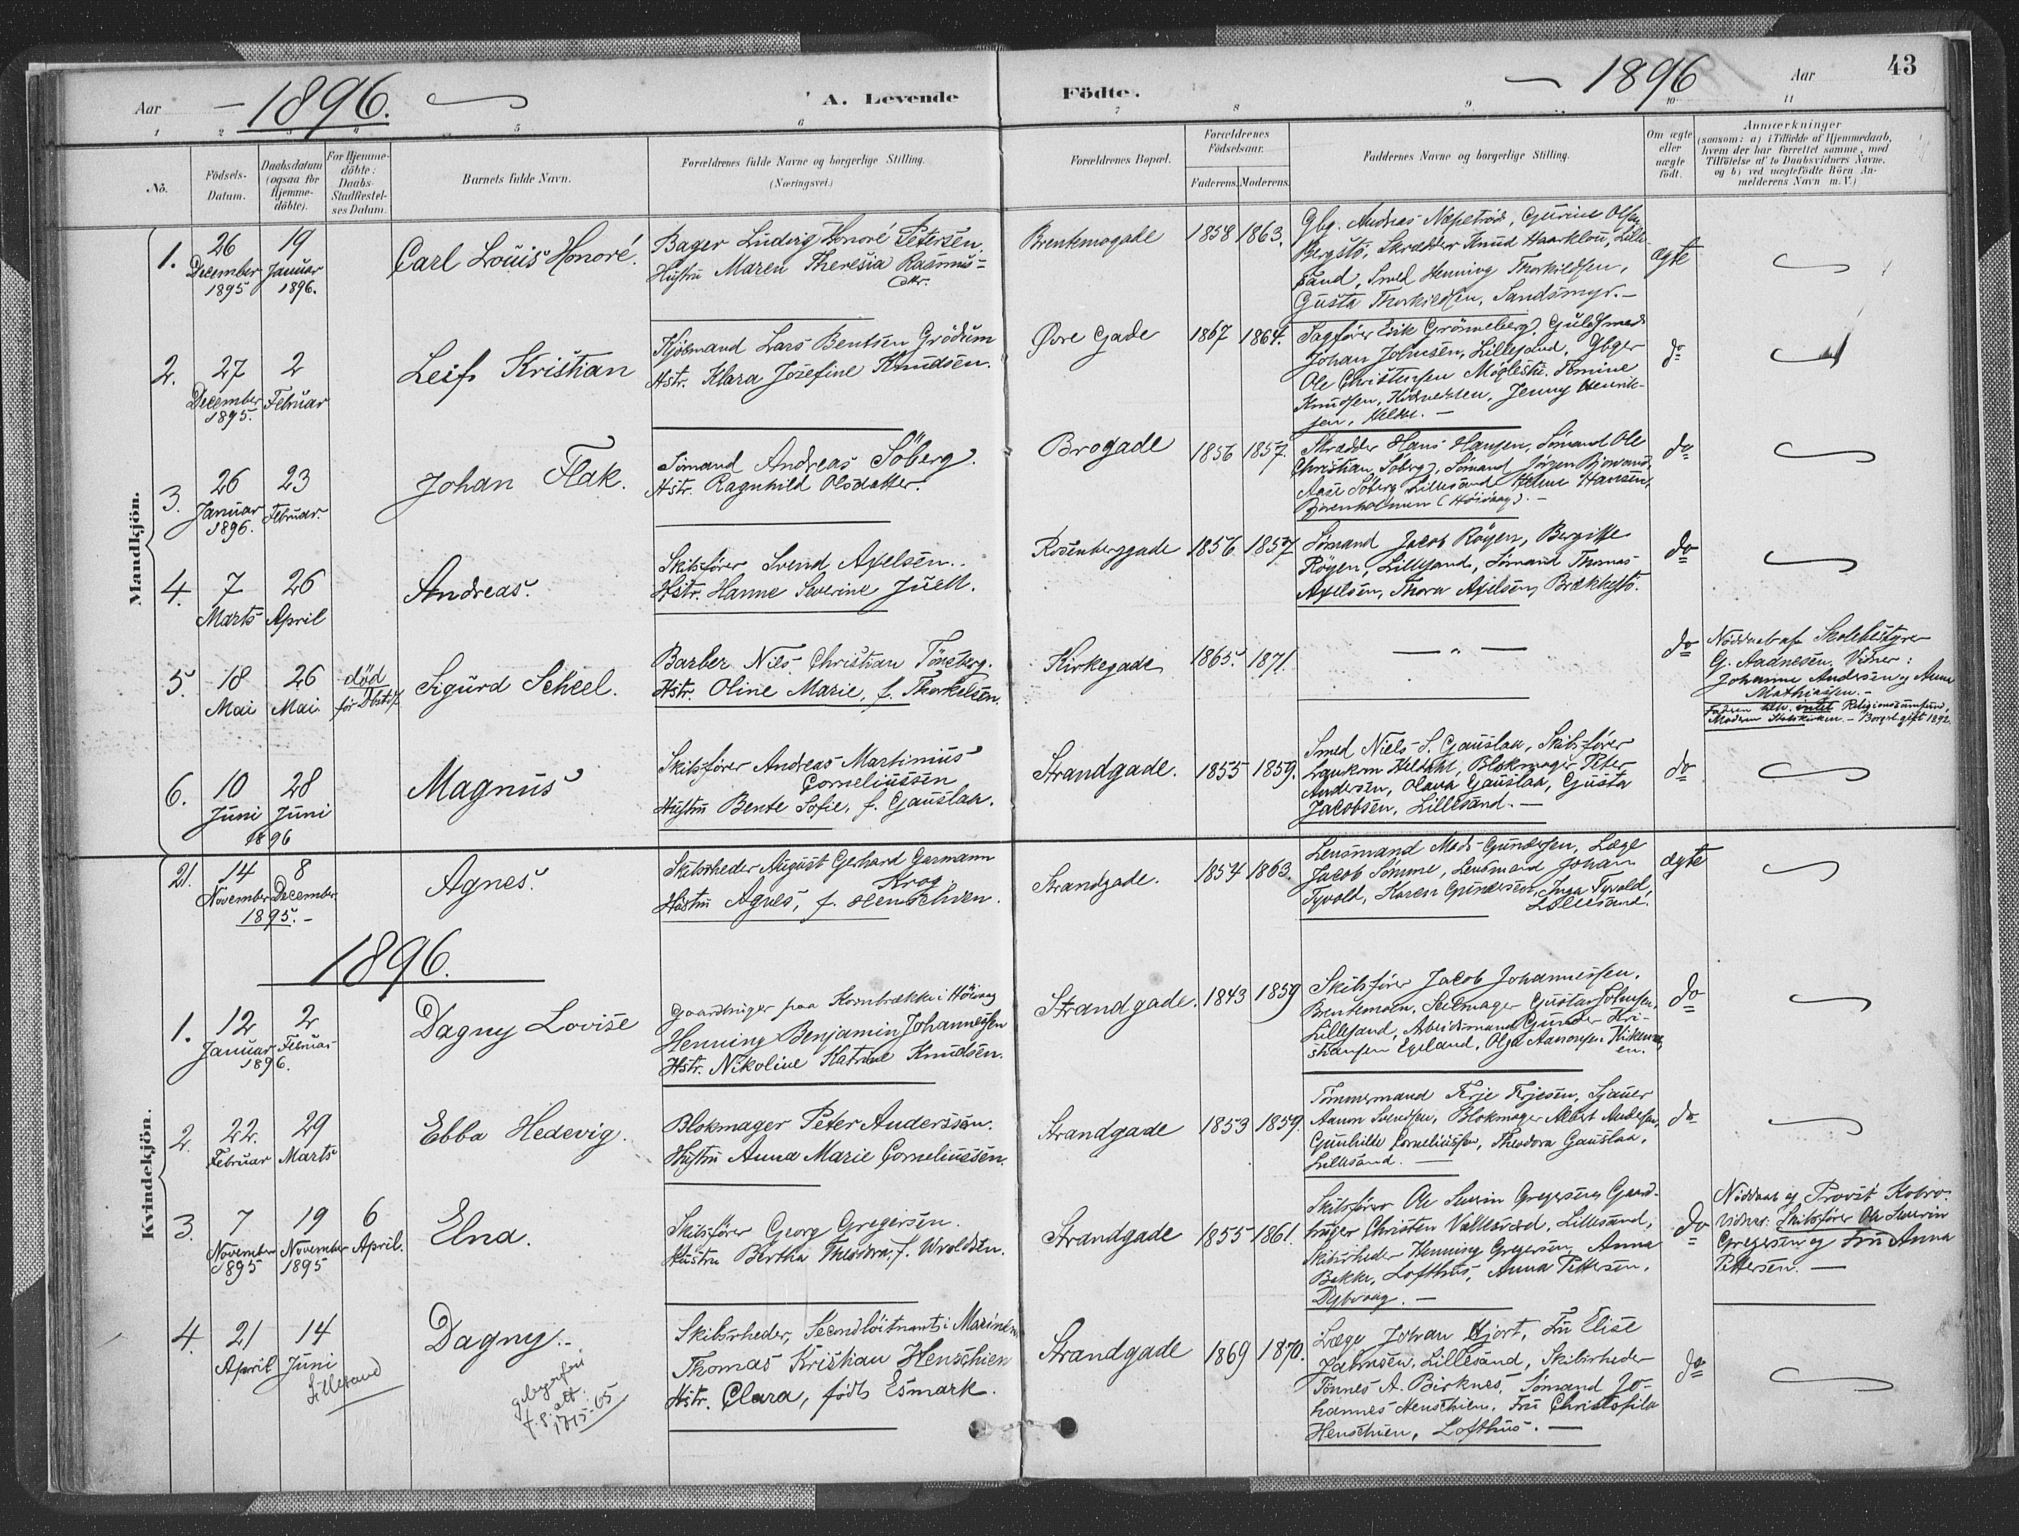 43
Aar — 1896. — A. Levende
Födte. — 1896 Aar
1 2 3 4 5 6
7 8 9 10 11
No.
Födsels-
Datum.
Daabsdatum
(ogsaa for
Hjemme-
döbte).
For Hjemme-
döbte:
Daabs-
Stadfæstel-
ses Datum.
Barnets fulde Navn.
Forældrenes fulde Navne og borgerlige Stilling.
(Næringsvei.)
Forældrenes Bopæl.
Forældrenes
Födselsaar.
Faderens. Moderens.
Faddernes Navne og borgerlige Stilling.
Om ægte
eller
uægte
födt.
Anmærkninger
(saasom: a) i Tilfælde af Hjemmedaab,
hvem der har forrettet samme, med
Tilföielse af to Daabsvidners Navne,
og b) ved uægtefödte Börn An-
melderens Navn m. V.)
Mandkjön.
1.
26
December
1895
19
Januar
1896.
Carl Louis Honoré.
Bager Ludvig Honoré Petersen
Hustru Maren Theresia Rasmus-
datr.
Brentemogade
1858 1863.
Gbg. Andreas Næpetröd, Gurine Olsen
Bergstö, Skrædder Knud Haarklou, Lille-
sand, Smed Henning Thorkildsen,
Gusta Thorkildsen, Sandsmyr. —
ægte
2.
27
December
1895.
2
Februar
Leif Kristian
Kjöbmand Lars Bentsen Grödum
Hstr. Klara Josefine Knudsen.
Øvre Gade
1867 1864.
Sagfører Erik Grönneberg, Guldsmed
Johan Johnsen, Lillesand, Gbger
Ole Christensen Möglestu, Tomine
Knudsen, Jenny Henrik-
sen, Heldal. —
do
3.
26
Januar
1896.
23
Februar.
Johan Flak.
Sömand Andreas Söberg.
Hstr. Ragnhild Olsdatter.
Brogade
1856 1857.
Skrædder Hans Hansen, Sömand Ole
Christian Söberg, Sömand Jörgen
Aase Söberg Lillesand Helene Hansen,
(Höivaag). —
do
4.
7
Marts
26
April
Andreas.
Skibsfører Svend Axelsen.
Hstr. Hanne Severine Juell.
Rosenberggade
1856 1857
Sömand Jacob Röyen, Bergitte
Röyen, Lillesand, Sömand Thomas
Axelsen, Thora Axelsen, Brækkestö.
do
5.
18
Mai
26
Mai
död
før Dbstdf.
Sigurd Scheel.
Barber Nils Christian Tönsberg.
Hstr. Oline Marie, f. Thorkelsen.
Kirkegade
1865. 1871.
— „ —
do
Nöddaab af Skolebestyrer
G. Aadnesen. Vidner:
Johanne Andersen og Anna
Mathiassen. —
Fadren tilh. intet Religionssamfund,
Modren Statskirken. — Borgel. gift 1892.
6.
10
Juni
28
Juni
1896
Magnus
Skibsfører Andreas Martinius
Corneliussen
Hustru Bente Sofie, f. Gauslaa.
Strandgade.
1855 1859.
Smed Niels S. Gauslaa, Skibsfører
Heldahl, Blokmager Peter
Andersen, Olava Gauslaa, Gusta
Jacobsen, Lillesand. —
do
Kvindekjön.
21.
14
November
8
December
1895. —
Agnes.
Skibsrheder August Gerhard Garmann
Krog.
Hustru Agnes, f. Henschien.
Strandgade.
1854 1863.
Lensmand Mads Gundersen, Læge
Jacob Sömme, Lensmand Johan
Tyvold, Karen Gundersen, Inga Tyvold,
Lillesand.
ægte
1896.
1.
12
Januar
2
Februar
1896.
Dagny Lovise
Gaardbruger paa Kornbrække i Höivaag
Henning Benjamin Johannessen
Hstr. Nikoline Katrine Knudsen.
Strandgade.
1843 1859
Skibsfører Jacob Johannessen,
Brentemoen, Seilmager Gustav Johnsen,
Lillesand, Arbeidsmand Gunder Kri-
stiansen Egeland, Olga Aanonsen, Kirkemo-
en.
do
2.
22.
Februar
29
Marts
Ebba Hedevig.
Blokmager Peter Anderssen.
Hustru Anna Marie Corneliussen.
Strandgade
1853 1859.
Tömmermand Terje Terjesen, Sjauer
Aanon Svendsen, Blokmager Albert Andersen,
Gunhilde Corneliussen, Theodora Gauslaa,
Lillesand. —
do
3.
7
November
1895
19
November
1895
6
April.
Elna.
Skibsfører Georg Gregersen.
Hustru Bertha Theodora, f. Uroldsen.
Strandgade
1855 1861.
Skibsfører Ole Severin Gregersen, Gaard-
bruger Christen Vallesværd, Lillesand,
Skibsrheder Henning Gregersen, Anna
Bakke, Lofthus, Anna Pettersen,
Dybvaag. —
do
Nöddaab af Provst Kobro.
Vidner: Skibsfører Ole Severin
Gregersen og Fru Anna
Pettersen. —
4.
21
April
14
Juni
Lillesand
Dagny.
Skibsrheder, Secondlöitnant i Marinen
Thomas Kristian Henschien
Hstr. Clara, född Esmark.
Strandgade
1869 1870.
Læge Johan Hjort, Fru Elise
Jakobsen, Lillesand, Skibsrheder
Tönnes A. Birknes, Sömand Jo-
hannes Henschien, Fru Christofila
Henschien, Lofthus. —
do